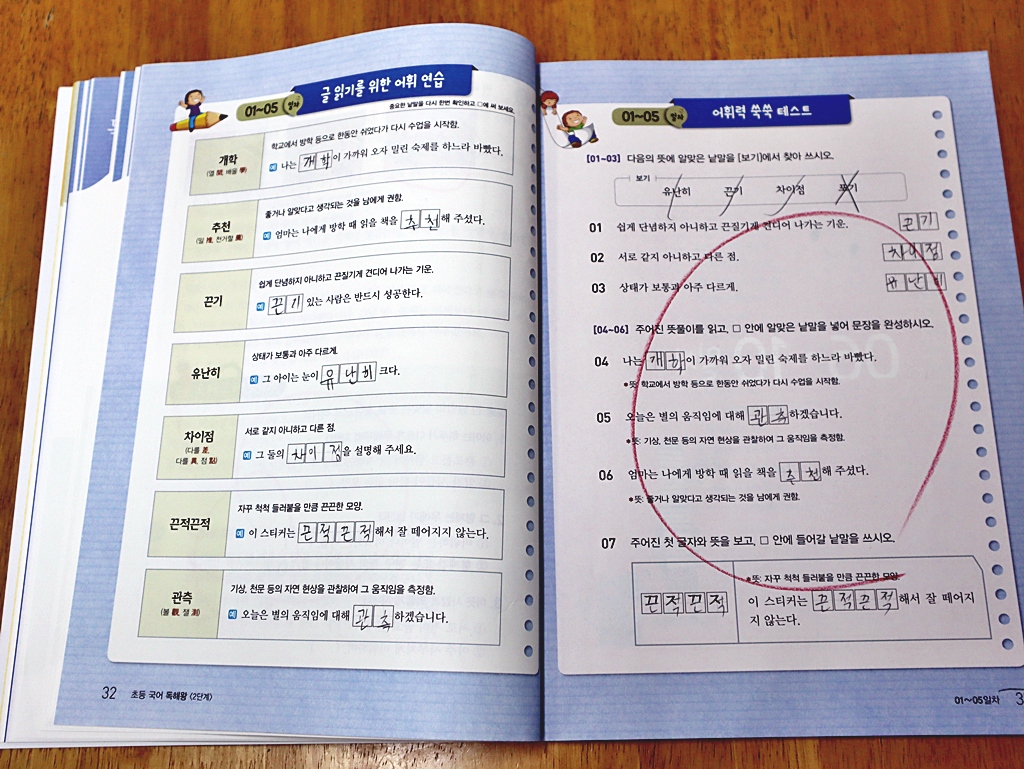 01~05 일차 글 읽기를 위한 어휘 연습
중요한 낱말을 다시 한번 확인하고 □에 써 보세요.
개학
(열 開, 배울 學)
학교에서 방학 등으로 한동안 쉬었다가 다시 수업을 시작함.
예 나는 개학이 가까워 오자 밀린 숙제를 하느라 바빴다.
추천
(밀 推, 천거할 薦)
좋거나 알맞다고 생각되는 것을 남에게 권함.
예 엄마는 나에게 방학 때 읽을 책을 추천해 주셨다.
끈기
쉽게 단념하지 아니하고 끈질기게 견디어 나가는 기운.
예 끈기 있는 사람은 반드시 성공한다.
유난히
상태가 보통과 아주 다르게.
예 그 아이는 눈이 유난히 크다.
차이점
(다를 差,
다를 異, 점 點)
서로 같지 아니하고 다른 점.
예 그 둘의 차이점을 설명해 주세요.
끈적끈적
자꾸 척척 들러붙을 만큼 끈끈한 모양.
예 이 스티커는 끈적끈적해서 잘 떼어지지 않는다.
관측
(볼 觀, 잴 測)
기상, 천문 등의 자연 현상을 관찰하여 그 움직임을 측정함.
예 오늘은 별의 움직임에 대해 관측하겠습니다.
32 초등 국어 독해왕 (2단계)
01~05 일차 어휘력 쑥쑥 테스트
[01~03] 다음의 뜻에 알맞은 낱말을 [보기]에서 찾아 쓰시오.
보기
유난히 끈기 차이점 포기
01 쉽게 단념하지 아니하고 끈질기게 견디어 나가는 기운. 끈기
02 서로 같지 아니하고 다른 점. 차이점
03 상태가 보통과 아주 다르게. 유난히
[04~06] 주어진 뜻풀이를 읽고, □ 안에 알맞은 낱말을 넣어 문장을 완성하시오.
04 나는 개학이 가까워 오자 밀린 숙제를 하느라 바빴다.
*뜻: 학교에서 방학 등으로 한동안 쉬었다가 다시 수업을 시작함.
05 오늘은 별의 움직임에 대해 관측하겠습니다.
*뜻: 기상, 천문 등의 자연 현상을 관찰하여 그 움직임을 측정함.
06 엄마는 나에게 방학 때 읽을 책을 추천해 주셨다.
*뜻: 좋거나 알맞다고 생각되는 것을 남에게 권함.
07 주어진 첫 글자와 뜻을 보고, □ 안에 들어갈 낱말을 쓰시오.
끈적끈적
*뜻: 자꾸 척척 들러붙을 만큼 끈끈한 모양.
이 스티커는 끈적끈적해서 잘 떼어지
지 않는다.
01~05일차 3